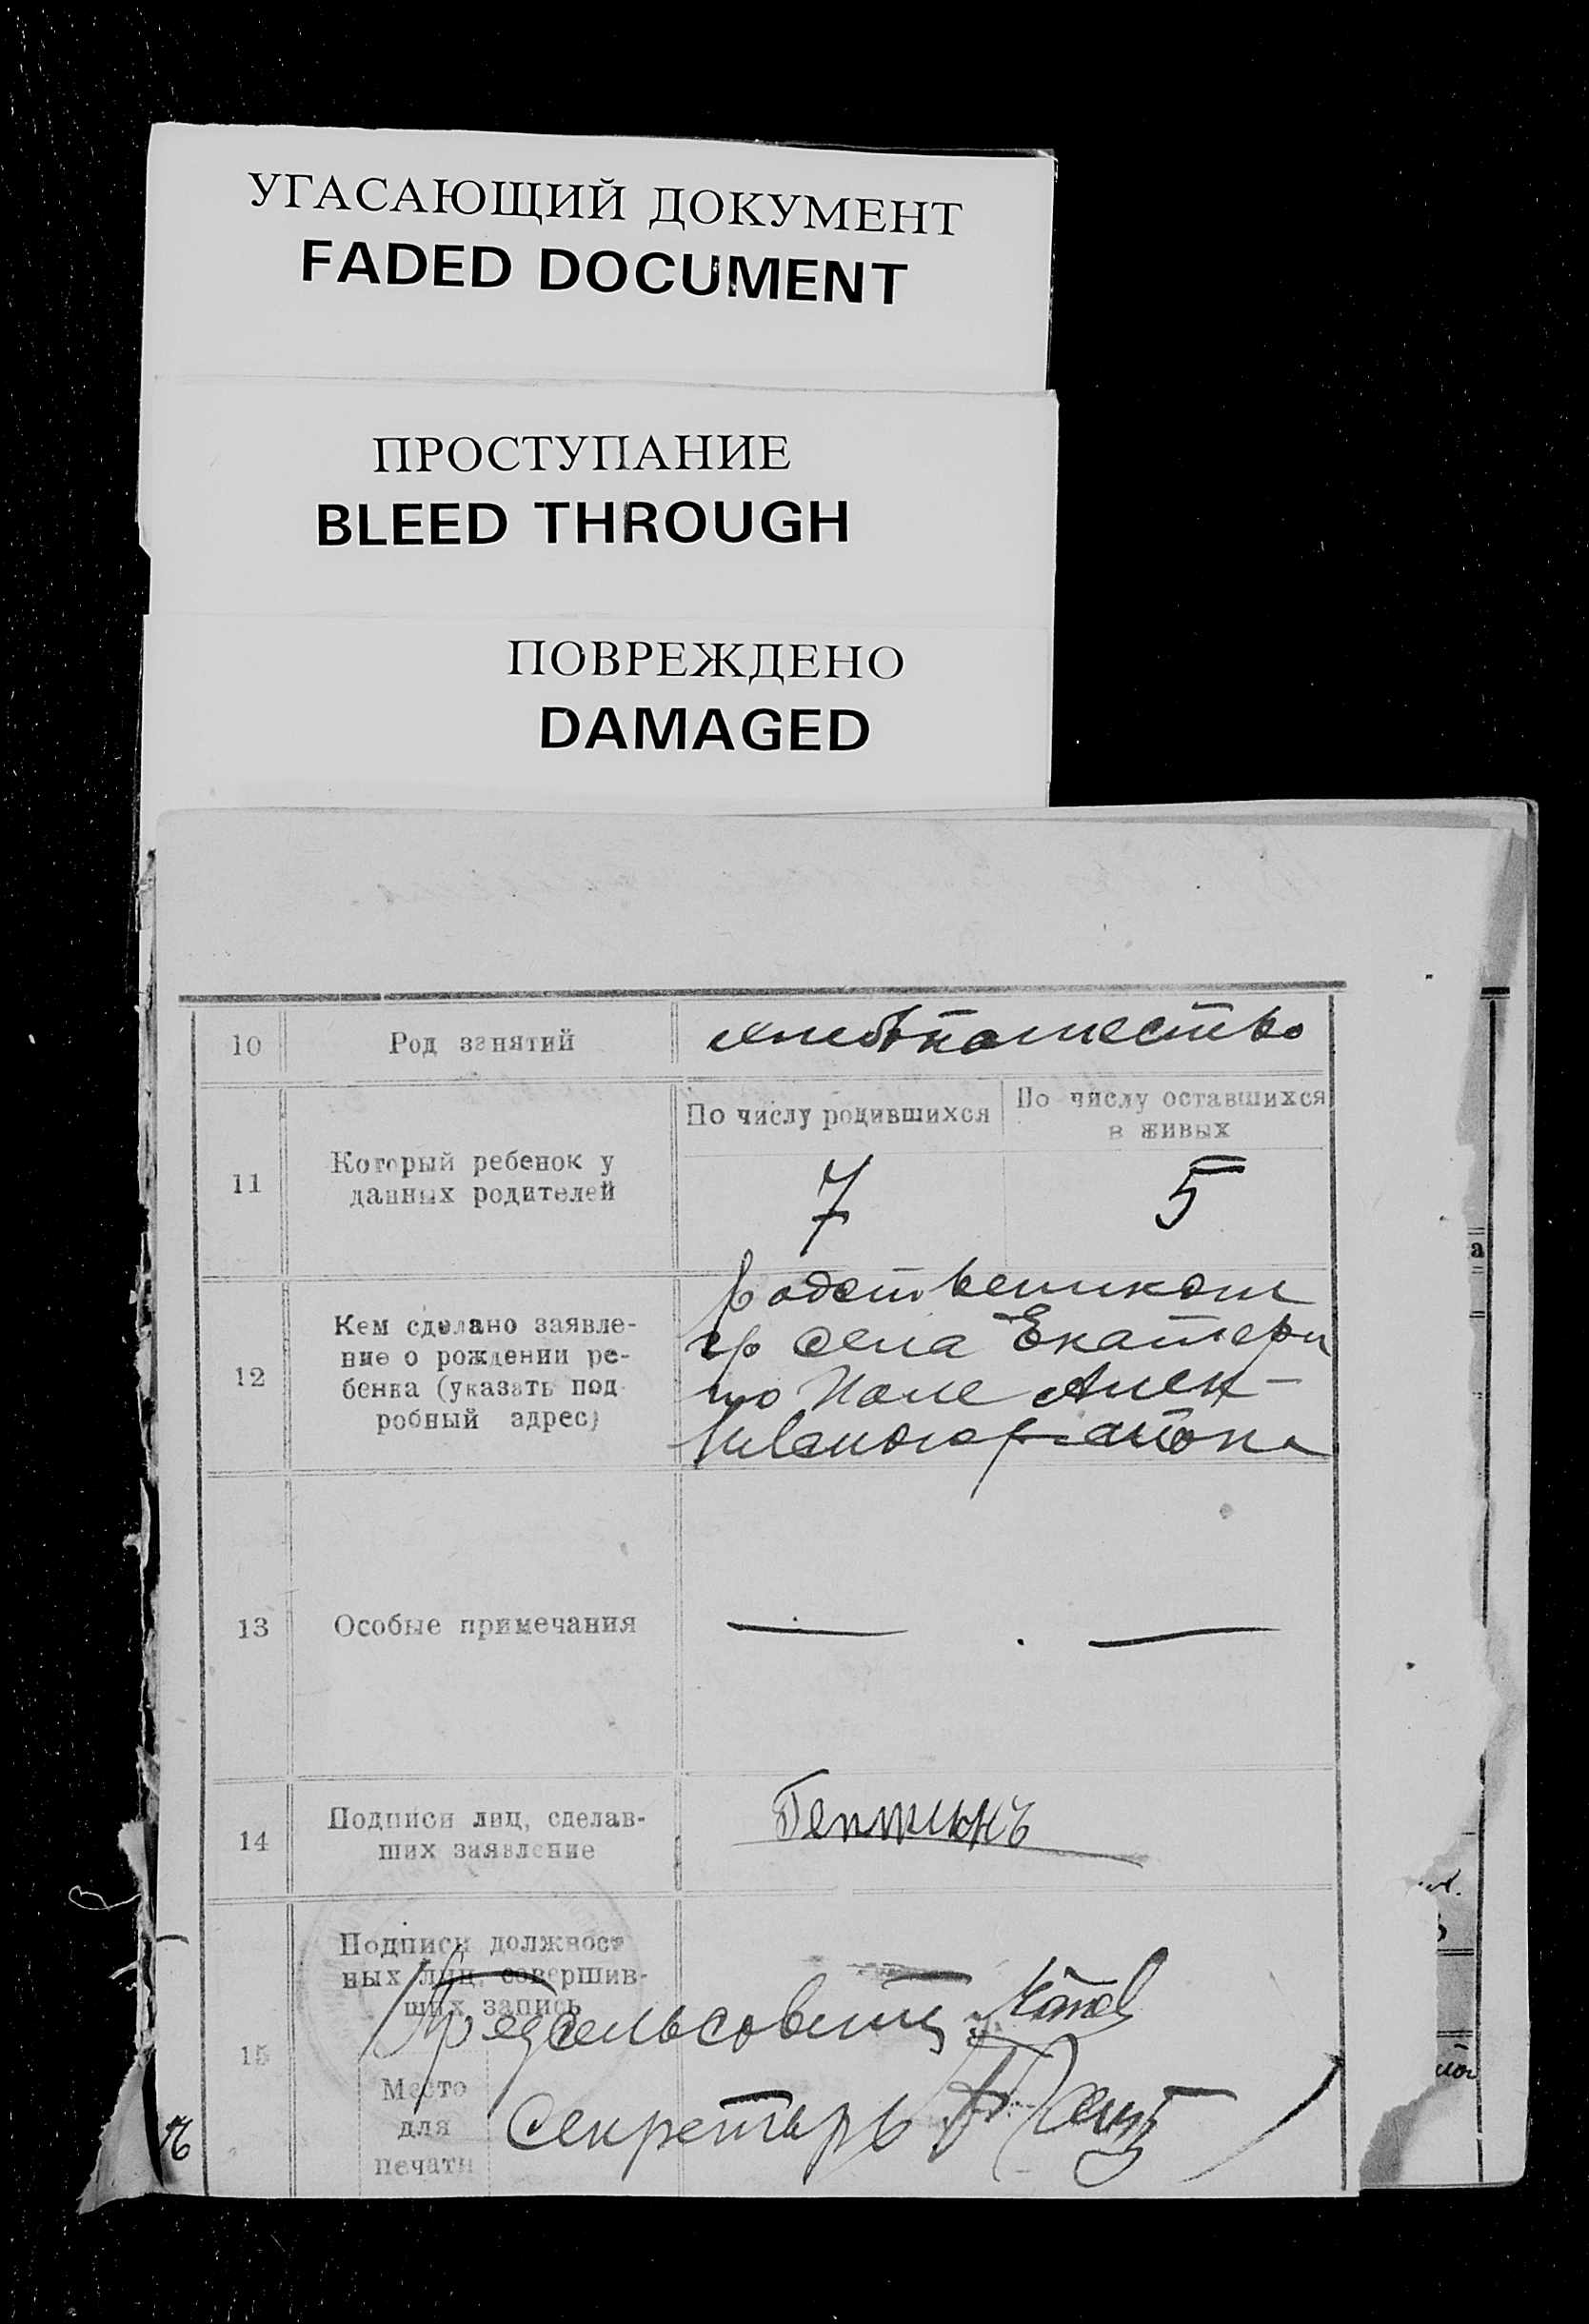 УГАСАЮЩИЙ ДОКУМЕНТ
FADED DOCUMENT
ПРОСТУПАНИЕ
BLEED THROUGH
ПОВРЕЖДЕНО
DAMAGED
10 Род занятий
11 Который ребенок у
данных родителей
По числу родившихся
7
По числу оставшихся
в живых
5
12 Кем сделано заявле-
ние о рождении ре-
бенка (указать под
робный адрес)
гр села Екатери
но Поле Алек-
13 Особые примечания
— . —
14 Подписи лиц, сделав-
ших заявление
15 Подписи должност
ных лиц, совершив-
ших запись
Место
для
печати
Предсельсовета
Секретарь